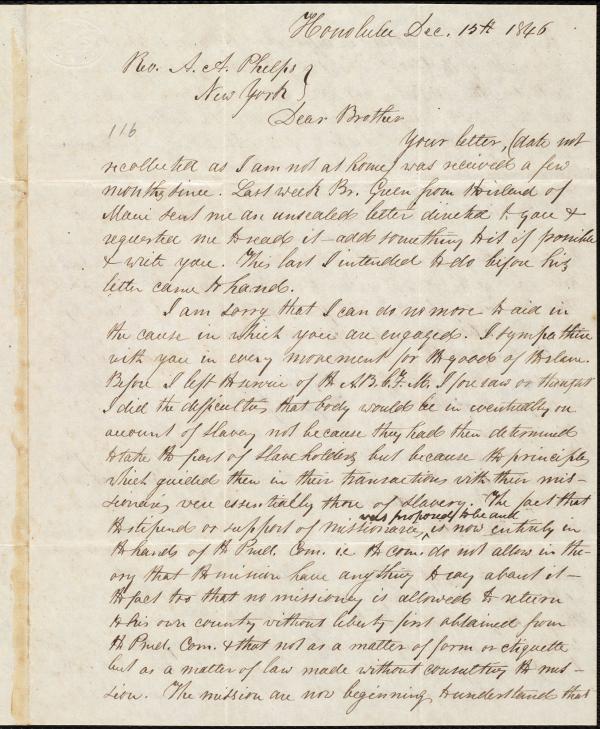 Honolulu Dec. 15th 1846
Rev. A. A. Phelps }
New York }
Dear Brother
116
Your letter, (date not
recollected as I am not at home) was received a few
months since. Last week Br. Green from the island of
Maui sent me an unsealed letter directed to you &
requested me to read it – add something to it if possible
& write you. This last I intended to do before his
letter came to hand.
I am sorry that I can do no more to aid in
the cause in which you are engaged. I sympathize
with you in every movement for the good of the slave.
Before I left the service of the A.B.C.F.M. I foresaw or thought
I did the difficulties that body would be in eventually on
account of slavery not because they had then determined
to take the part of slaveholders but because the principles
which guided them in their transactions with their mis-
sionaries were essentially those of slavery. The fact that
was proposed to be and
the stipend or support of missionaries, is now entirely in
the hands of the Prud. Com. i.e. the com. do not allow in the-
ory that the mission have anything to say about it –
the fact too that no missionary is allowed to return
to his own country without liberty first obtained from
the Prud. Com. & that not as a matter of form or etiquette
but as a matter of law made without consulting the mis-
sion. The mission are now beginning to understand that